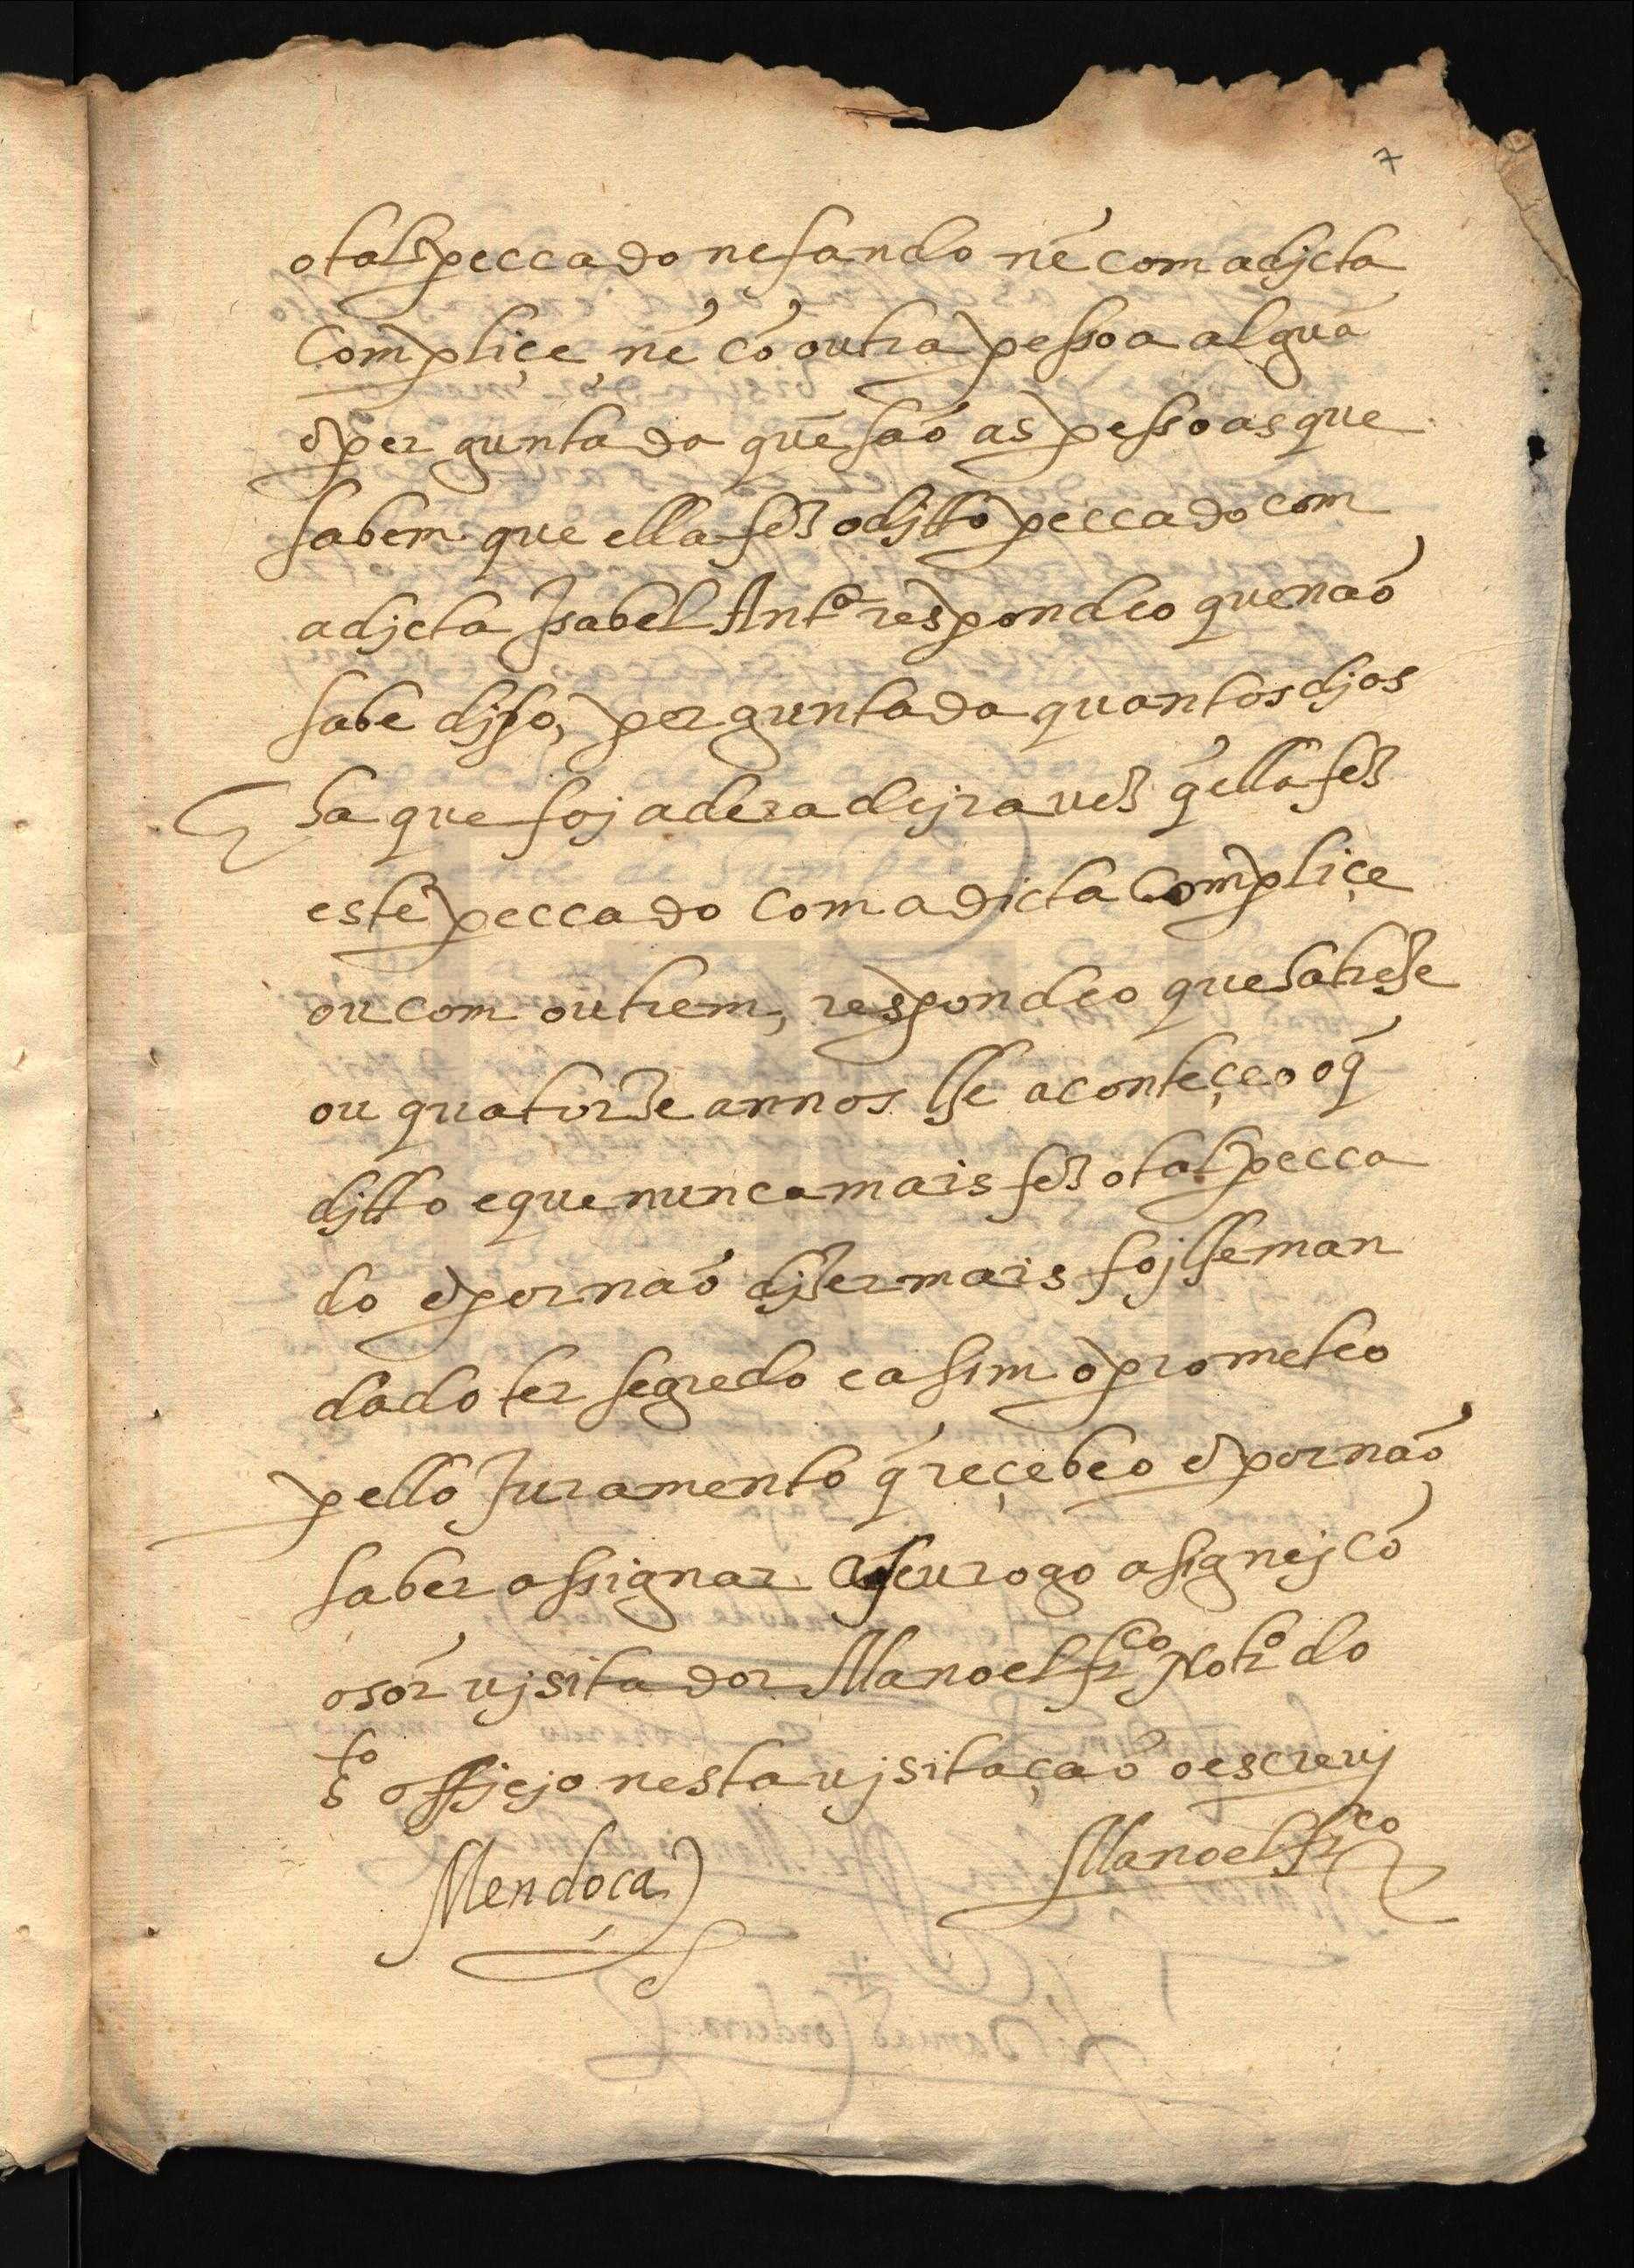 7
o tal peccado nefando nẽ com a djcta
Compliçe, nẽ cõ outra pessoa algũa
E perguntada quẽ saõ as pessoas que
sabem que ella fez o djtto peccado com
a djcta Isabel Antª respondeo que naõ
sabe djsso, perguntada quantos djos
ha que foj a deradejra uez q̃ ella fez
este peccado com a dicta Compliçe
ou com outrem, respondeo que ha treze
ou quatorze annos lhe aconteçeo o q̃
djtto e que nunca mais fez o tal pecca
do E por naõ djzer mais foj lhe man
dado ter segredo e asim o prometeo
pello Juramento q̃ reçebeo E por naõ
saber assignar a seu rogo asignej cõ
o sõr ujsitador Manoel frco Notrº do
sto offjcjo nesta ujsitaçaõ o escreuj
Mendoça
Manoel frco